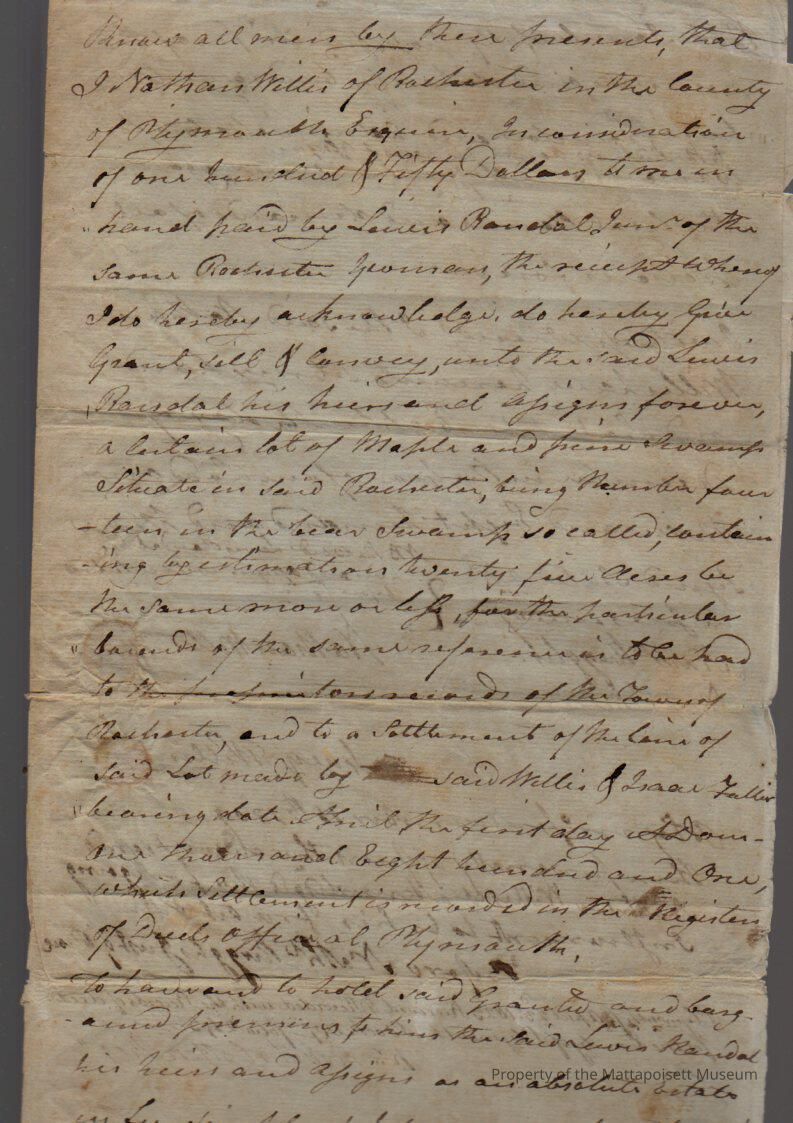 Know all men by these presents, that
I Nathan Willis of Rochester in the County
of Plymouth Esquire, In consideration
of one hundred & Fifty Dollars to me in
hand paid by Lewis Randal Junr. of the
same Rochester Yeoman, the receipt whereof
I do hereby acknowledge, do hereby Give
Grant, sell & convey, unto the said Lewis
Randal his heirs and assigns forever,
a certain lot of Maple and pine Swamp
Situate in said Rochester, being Number four
-teen in the bear Swamp so called, contain
-ing by estimation twenty five acres be
the same more or less, for the particular
bounds of the same reference is to be had
to the proprietors records of the Town of
Rochester, and to a Settlement of the line of
said Lot made by said Willis & Isaac
bearing date April the first day A Dom-
one thousand Eight hundred and One,
which Settlement is recorded in the Registers
of Deeds office at Plymouth.
To have and to hold said Granted and barg-
-ained premises to him the said Lewis Randal
his heirs and assigns as an absolute estate
Property of the Mattapoisett Museum